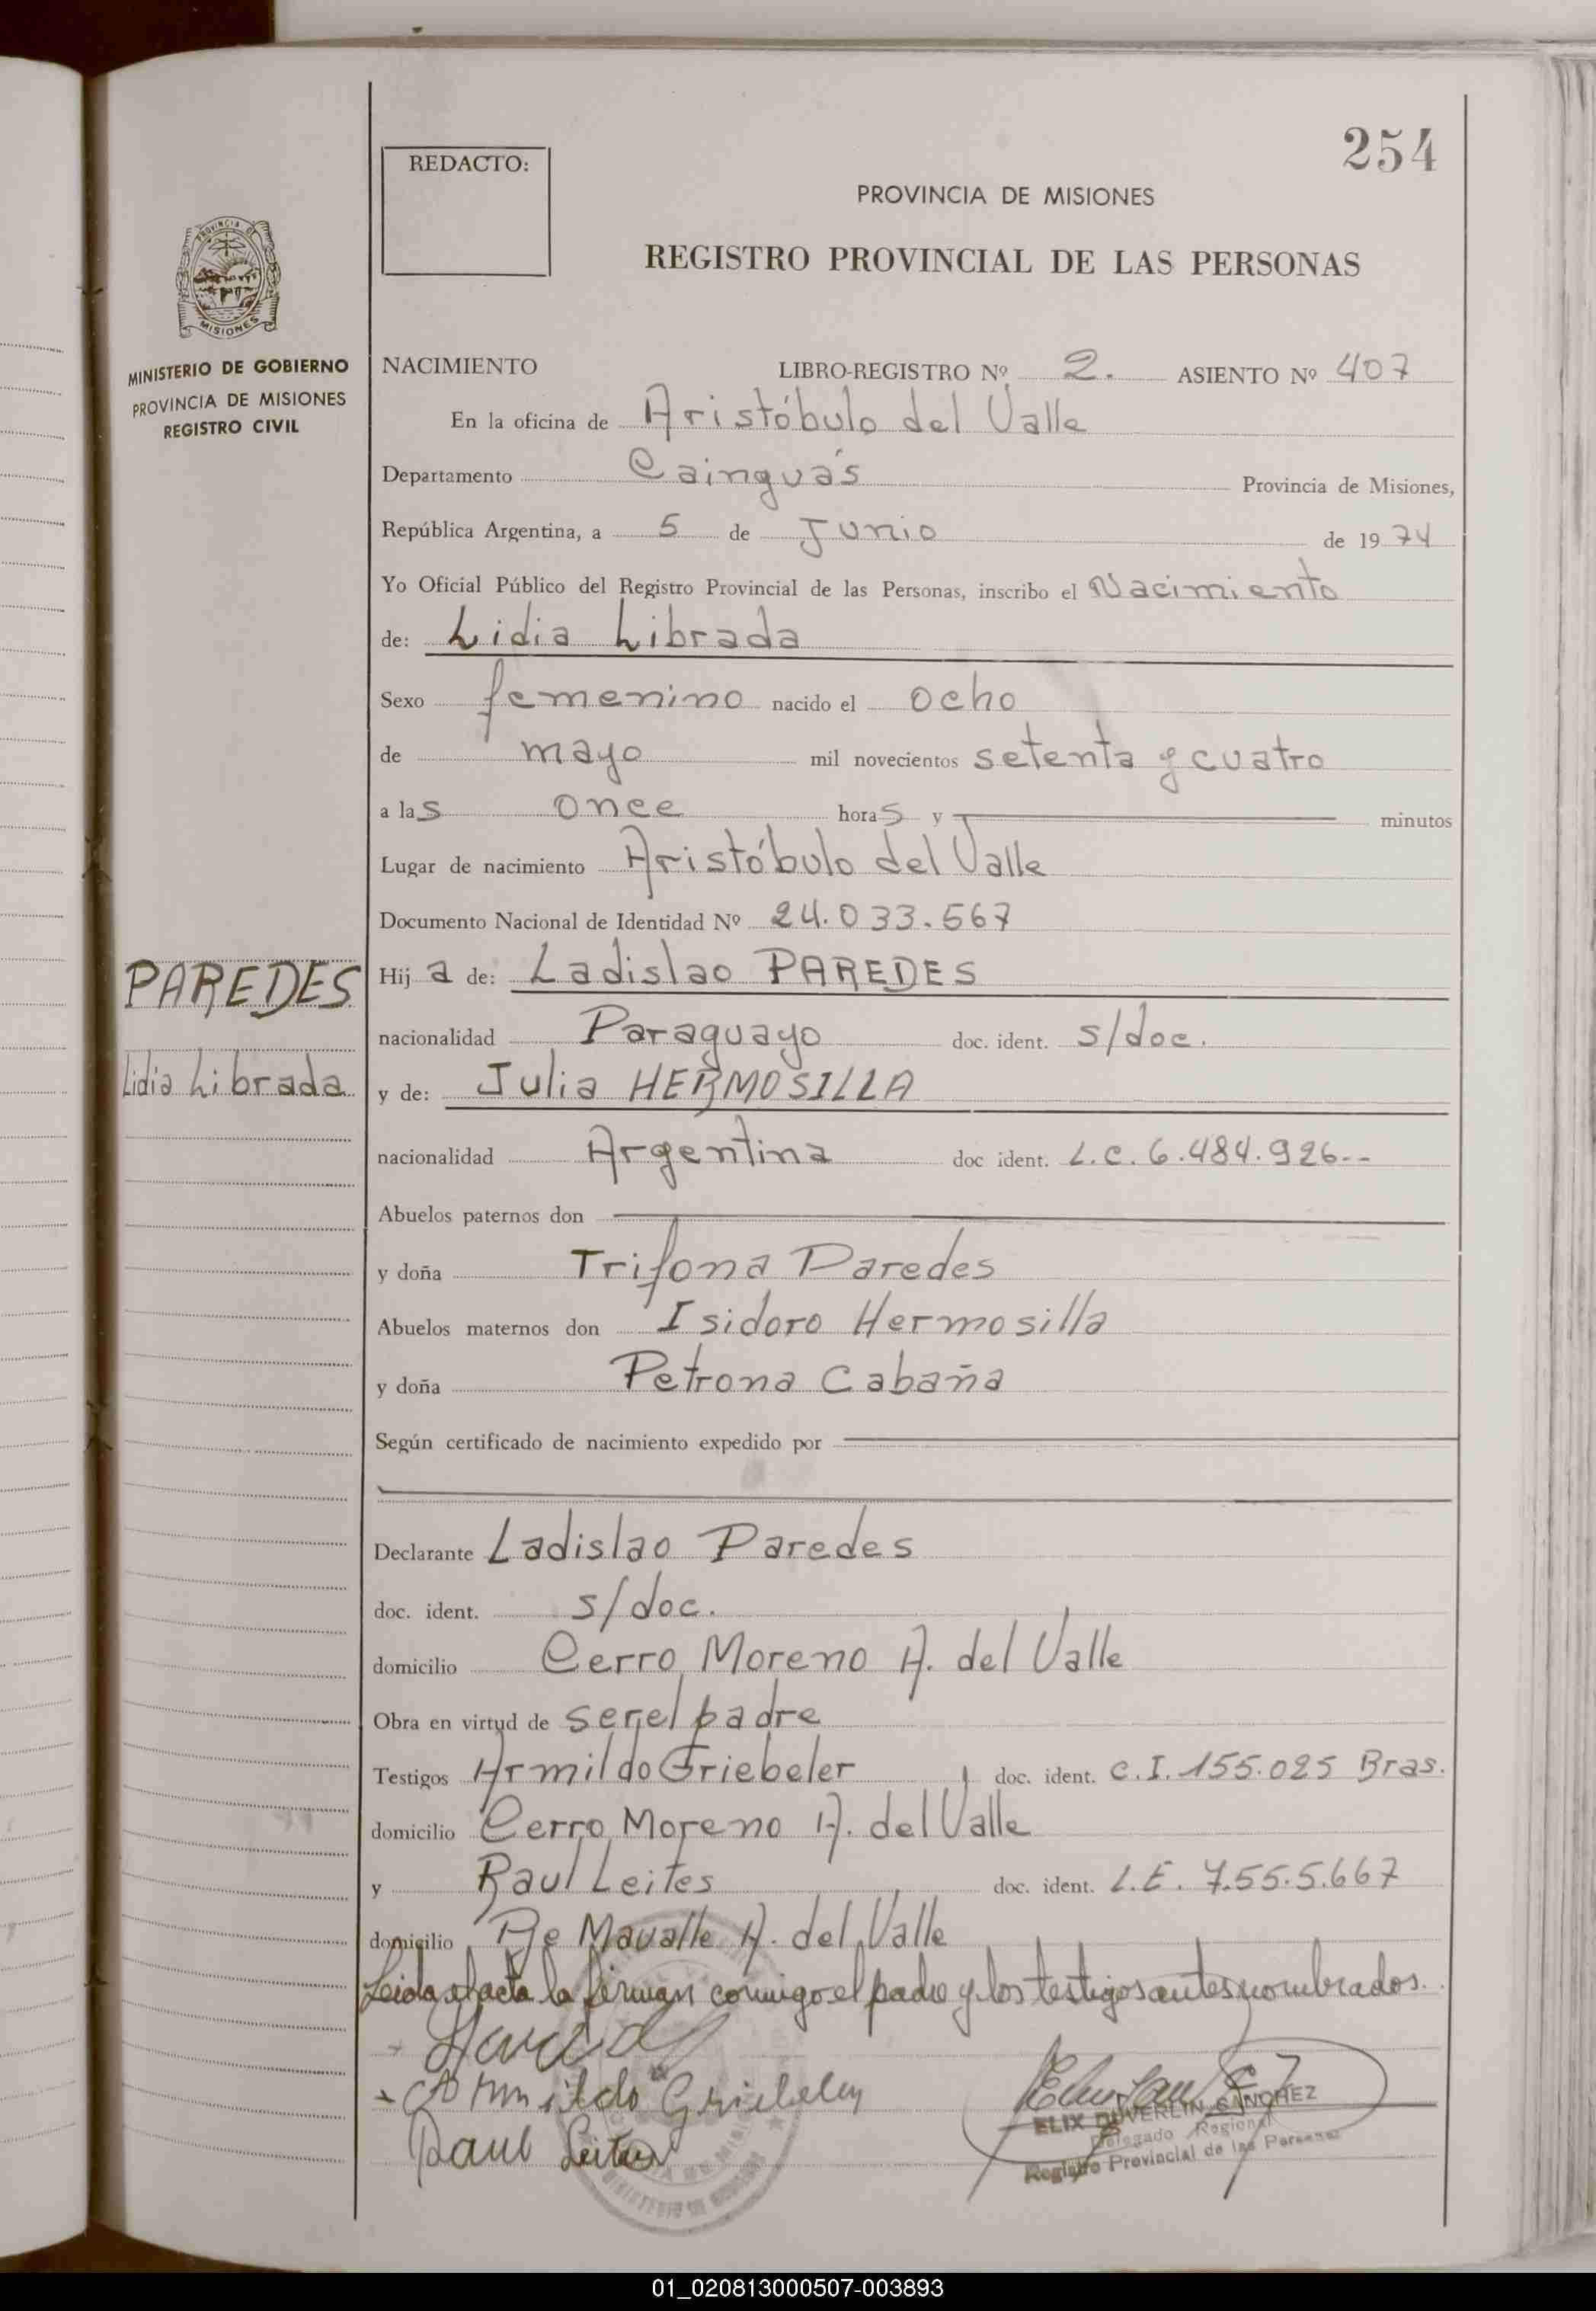 254
REDACTO:
PROVINCIA DE MISIONES
REGISTRO PROVINCIAL DE LAS PERSONAS
PROVINCIA DE
MISIONES
MINISTERIO DE GOBIERNO
PROVINCIA DE MISIONES
REGISTRO CIVIL
NACIMIENTO LIBRO-REGISTRO Nº 2. ASIENTO Nº 407
En la oficina de Aristóbulo del Valle
Departamento Cainguás Provincia de Misiones,
República Argentina, a 5 de Junio de 1974
Yo Oficial Público del Registro Provincial de las Personas, inscribo el Nacimiento
de: Lidia Librada
Sexo femenino nacido el ocho
de mayo mil novecientos setenta y cuatro
a las once horas y minutos
Lugar de nacimiento Aristóbulo del Valle
Documento Nacional de Identidad Nº 24.033.567
PAREDES
Lidia Librada
Hija de: Ladislao PAREDES
nacionalidad Paraguayo doc. ident. s/doc.
y de: Julia HERMOSILLA
nacionalidad Argentina doc ident. L.C. 6.484.926--
Abuelos paternos don
y doña Trifona Paredes
Abuelos maternos don Isidoro Hermosilla
y doña Petrona Cabaña
Según certificado de nacimiento expedido por
Declarante Ladislao Paredes
doc. ident. s/doc.
domicilio Cerro Moreno A. del Valle
Obra en virtud de ser el padre
Testigos Armildo Griebeler doc. ident. C.I. 155.025 Bras.
domicilio Cerro Moreno A. del Valle
y Raul Leites doc. ident. L.E. 7.55.5.667
domicilio Pje Mavalle A. del Valle
Leida el acta la firman conmigo el padre y los testigos antes nombrados.
Armildo Griebeler
Raul Leites
ELIX DUVERLIN SANCHEZ
Delegado Regional
Registro Provincial de las Personas
01_020813000507-003893